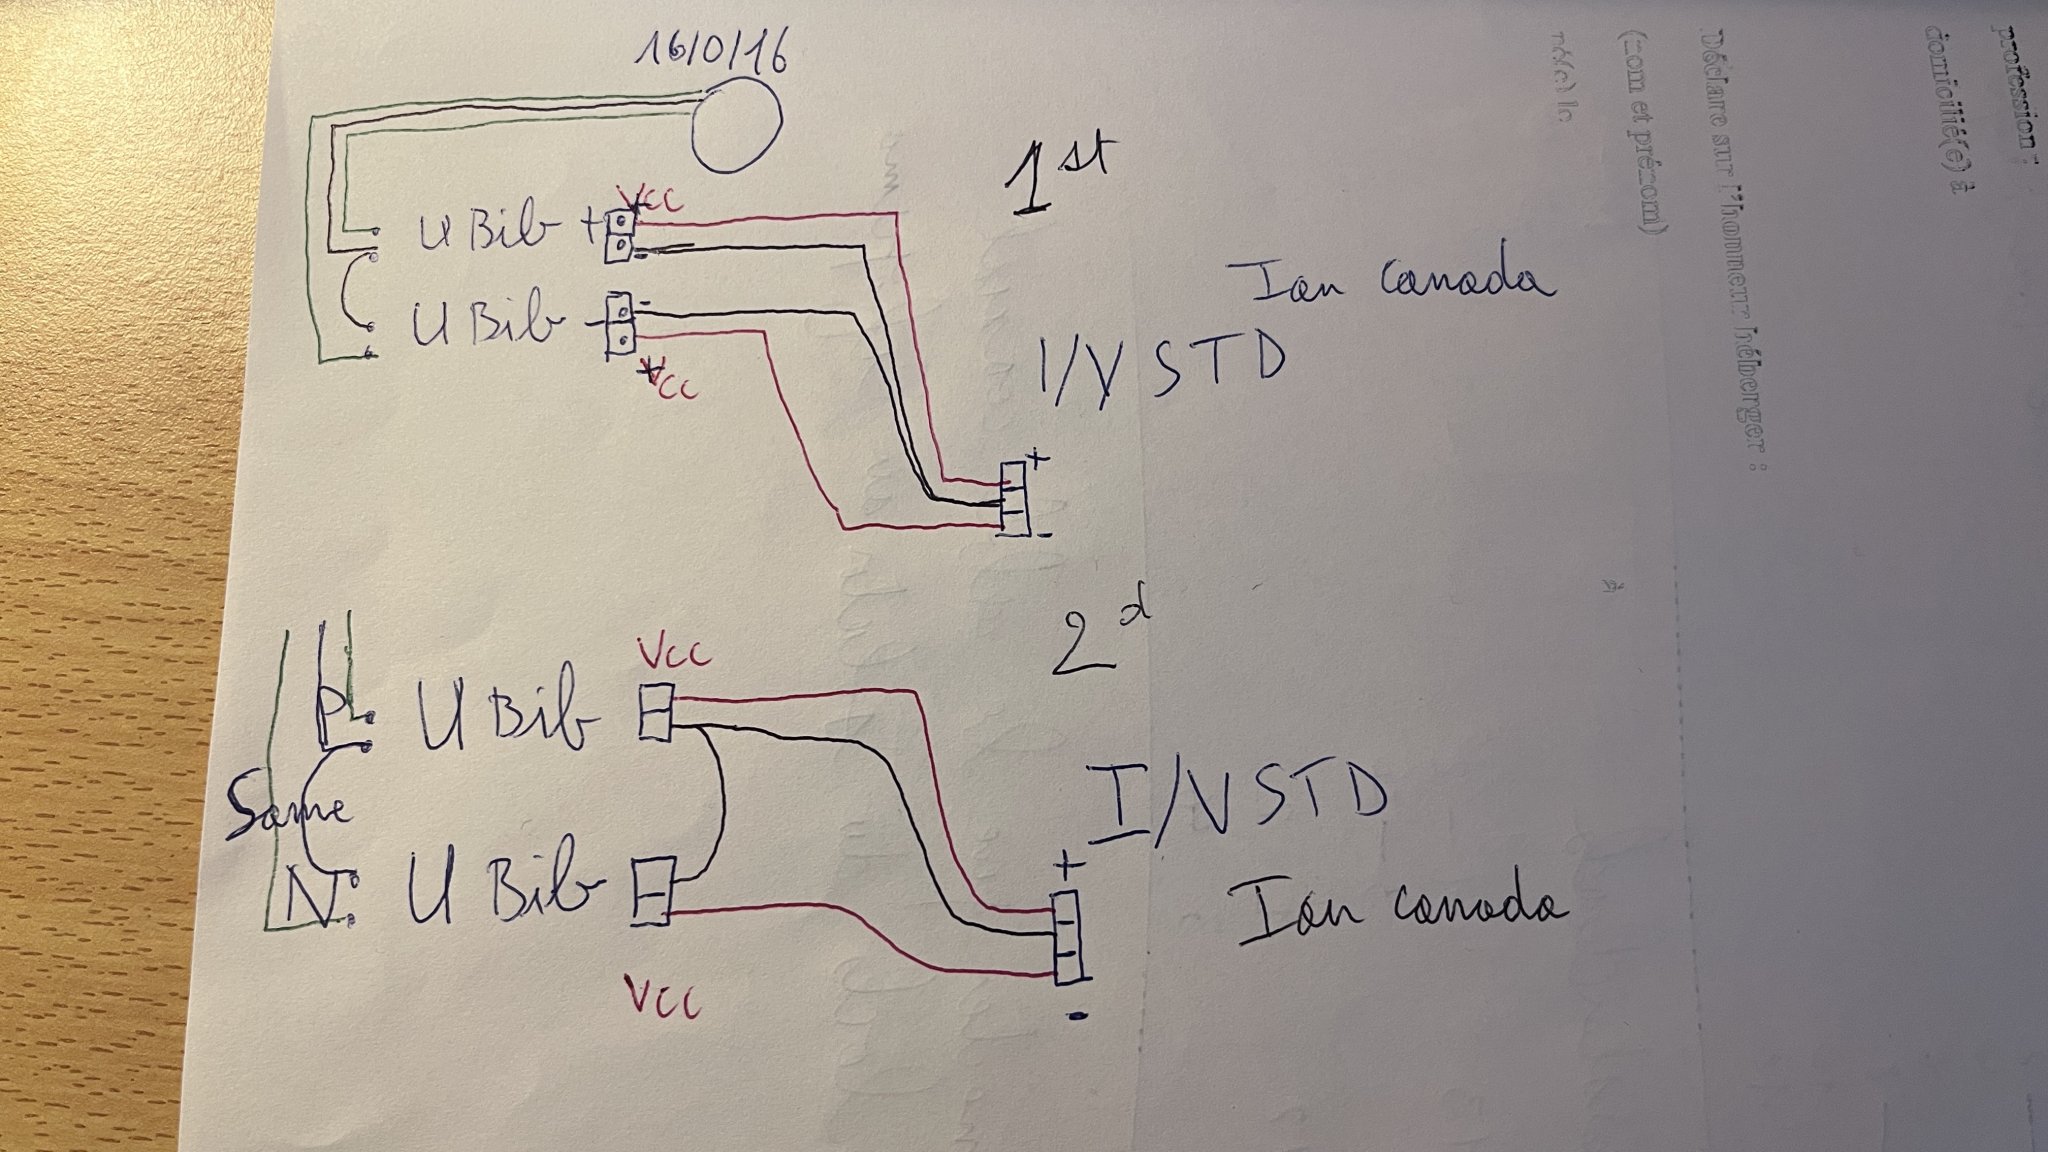 16/0/16
1st
Vcc
U Bib +
-
Ian Canada
U Bib -
-
I/V STD
+Vcc
+
-
2d
Vcc
P
U Bib
Same
I/V STD
+
N
U Bib
Ian Canada
Vcc
-
profession :
domicilié(e) à
Déclare sur l'honneur héberger :
(nom et prénom)
né(e) le
à